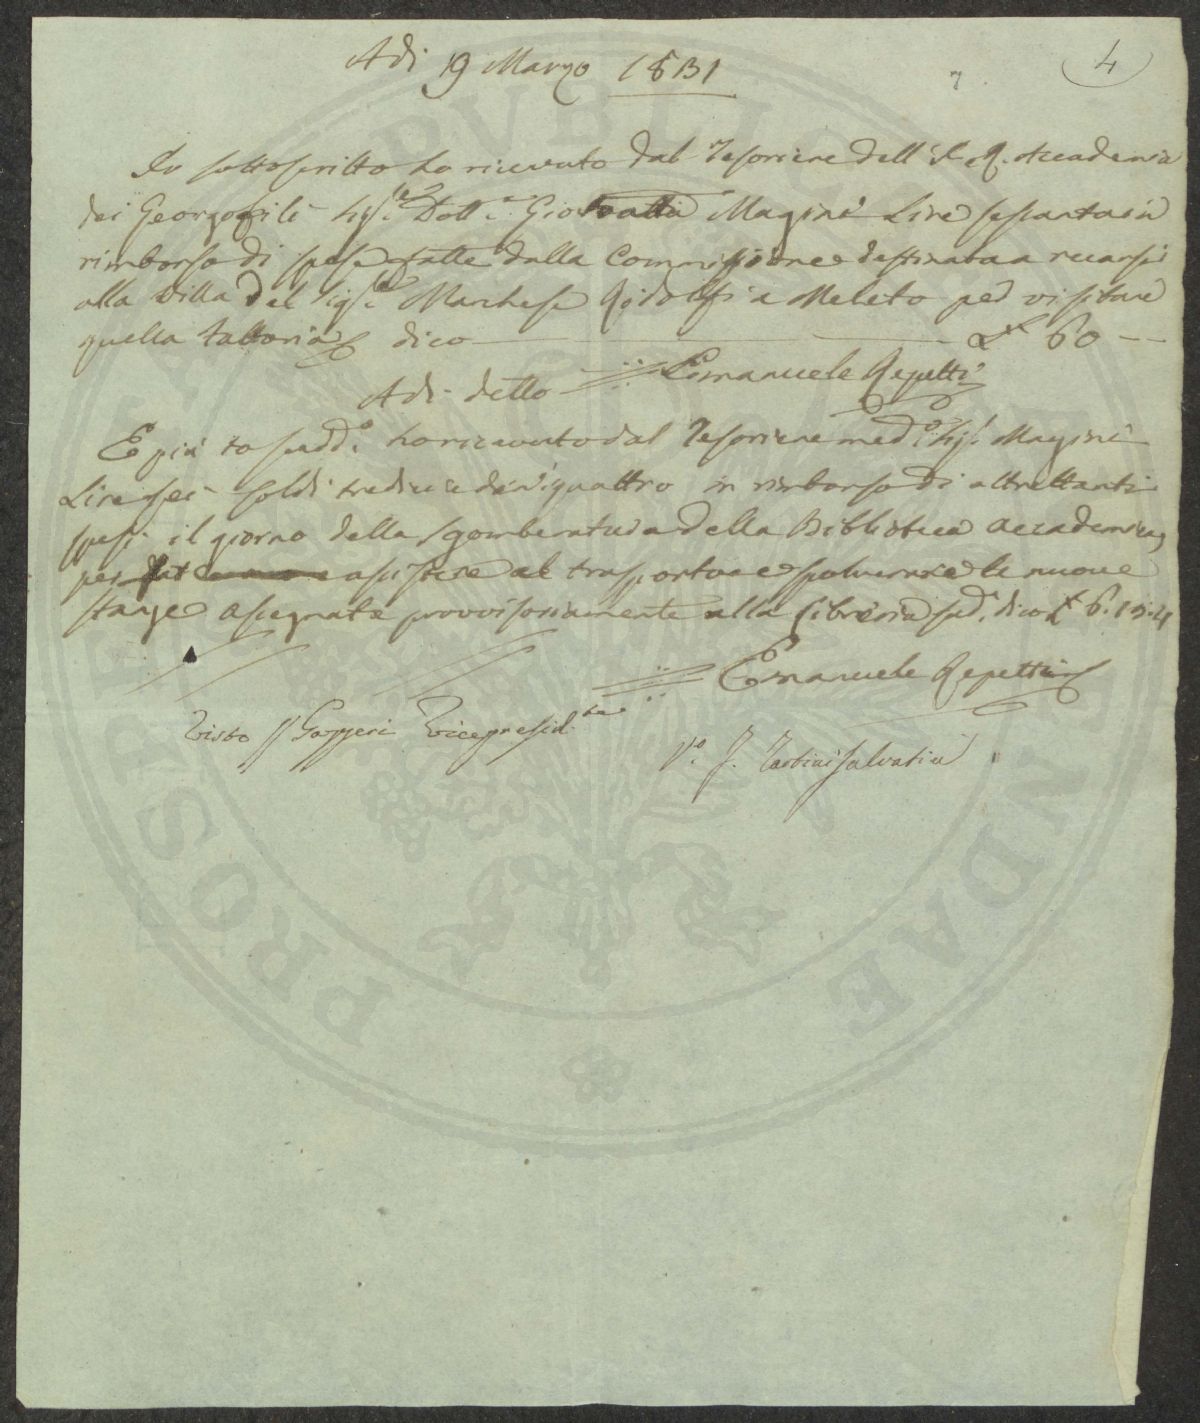 Adi 19 Marzo 1831
4
7
Io sottoscritto ho ricevuto dal Tesoriere dell' I. R. Accademia
dei Georgofili Sigre. Dott. Magini Lire sessanta in
rimborso di spese fatte dalla Commissione destinata a recarsi
alla Villa del Sigre. Marchese Ridolfi a Meleto per visitare
quella fattoria dico L 60
Emanuele Repetti
Adi detto
E più io sudd.o ho ricevuto dal Tesoriere med.o Sig. Magini
Lire sei soldi tredici e den. quattro in rimborso di altrettanti
spesi il giorno della sgomberatura della Biblioteca accademica
per assistere al trasporto e spolverare le nuove
stanze assegnate provvisoriamente alla libreria sud. dico L 6.13.4
Emanuele Repetti
Visto Gazzeri Vicepresid.te
Vo. J. Tartini Salvatici
PROSPERITATI PUBLICAE AUGENDAE